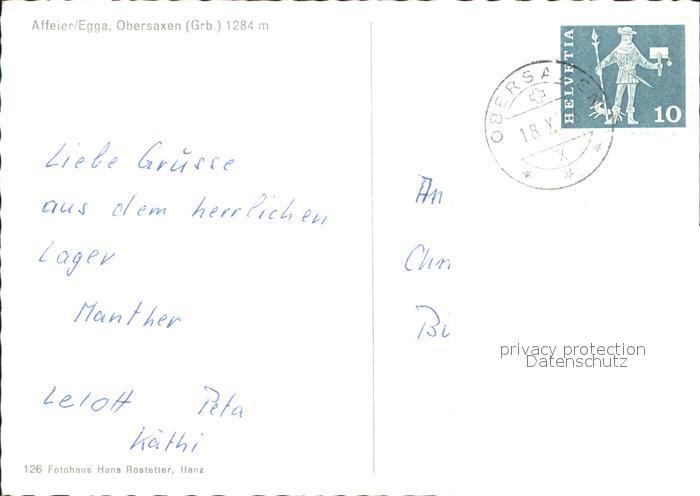 Affeier/Egga, Obersaxen (Grb.) 1284 m
HELVETIA
10
OBERSAXEN
18.X
Liebe Grüsse
aus dem herrlichen
Lager
Manther
Lelott Peta
Käthi
An
Chr
Bü
privacy protection
Datenschutz
126 Fotohaus Hans Rostetter, Ilanz